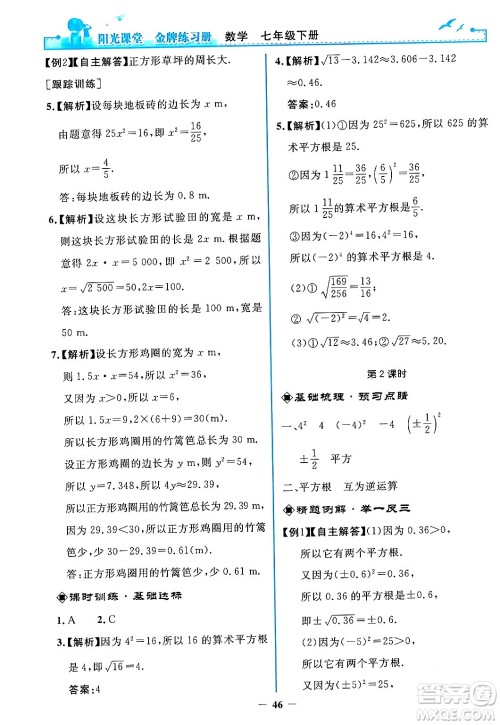 阳光课堂 金牌练习册 数学 七年级下册
[例2][自主解答]正方形草坪的周长大.
[跟踪训练]
5.[解析]设每块地板砖的边长为 x m,
由题意得 25x²=16, x²=16/25
所以 x=4/5.
答:每块地板砖的边长为 0.8 m.
6.[解析]设这块长方形试验田的宽是 x m,
则这块长方形试验田的长是 2x m,根据
题意可得 2x·x=5 000,即 x²=2 500,
所以 x=√2 500=50.
答:这块长方形试验田的长是 100 m,宽是
50 m.
7.[解析]设长方形鸡圈的宽为 x m,
则 1.5x·x=54,所以 x²=36,所以 x=6.
所以 1.5x=9,2×(6+9)=30(m)
所以长方形鸡圈用的竹篱笆总长为 30 m.
设正方形鸡圈的边长为 y m,则 y²=54,
所以 y=7.348,所以 4y=29.39(m).
所以正方形鸡圈用的竹篱笆总长为 29.39 m.
因为 29.39<30,所以正方形鸡圈用的竹篱
笆少,少 30-29.39=0.61(m).
答:正方形鸡圈用的竹篱笆少,少 0.61 m.
课时训练·基础达标
1. A 2. C
3.[解析]因为 4²=16,所以 16 的算术平方根
是 4,即√16=4.
答案:4
4.[解析]√13-3.142≈3.606-3.142≈
0.46.
答案:0.46
5.[解析](1)①因为 25²=625,所以 625 的算
术平方根是 25.
②因为 1 11/25=36/25,(6/5)²=36/25,
所以 1 11/25的算术平方根是 6/5.
③因为(-4)²=16,4²=16,
所以(-4)²的算术平方根是 4.
(2)①√169/256=√(13/16)²=13/16.
②√(-2)²=√4=2. ③√27≈5.20.
第 2 课时
基础梳理·预习点睛
一、4² 4 (-4)² -4 (±1/2)²
±1/2 平方
二、平方根 互为逆运算
精题例解·举一反三
[例1][自主解答](1)因为 0.36>0,
所以它有两个平方根.
又因为(±0.6)²=0.36,
所以 0.36 的平方根为±0.6.
(2)因为 0.36²>0,
所以它有两个平方根.
又因为(±0.36)²=0.36²,
46